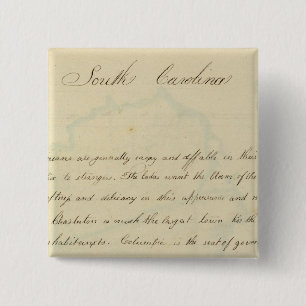 South Carolina
are generally easy and affable in their
to strangers. The ladies want the bloom of the
and delicacy in their appearance and
Charleston is much the largest town
habitants. Columbia is the seat of gover